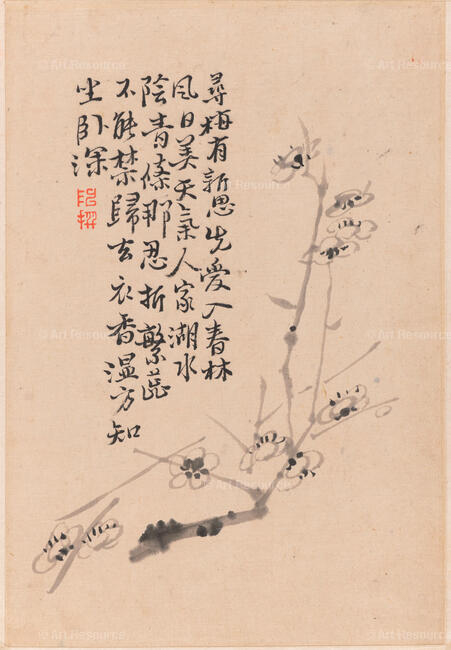 尋梅有新思先愛入春林
風日美天氣人家湖水
陰青條那忍折繁蕊
不能禁歸去衣香溫方知
坐卧深
© Art Resource